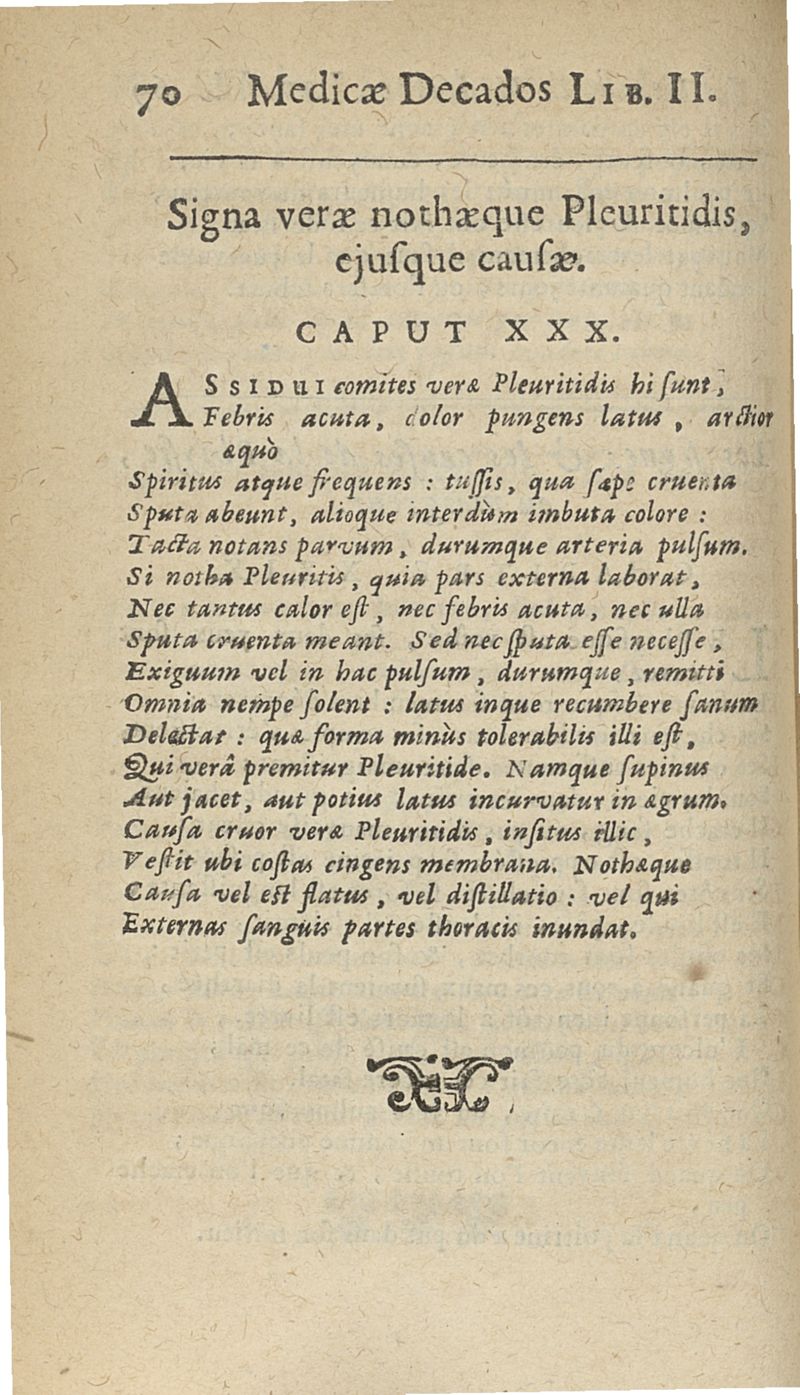 70 Medicæ Decados LIB. II.
Signa veræ nothæque Pleuritidis,
ejuſque cauſæ.
CAPUT XXX.
ASSIDUI comites veræ Pleuritidis hi ſunt,
Febris acuta, dolor pungens latus, arctior
æquò
Spiritus atque frequens : tuſſis, qua ſæpe cruenta
Sputa abeunt, alioque interdùm imbuta colore :
Tacta notans parvum, durumque arteria pulſum.
Si notha Pleuritis, quia pars externa laborat,
Nec tantus calor eſt, nec febris acuta, nec ulla
Sputa cruenta meant. Sed nec ſputa eſſe neceſſe,
Exiguum vel in hac pulſum, durumque, remitti
Omnia nempe ſolent : latus inque recumbere ſanum
Delectat : quæ forma minùs tolerabilis illi eſt,
Qui verâ premitur Pleuritide. Namque ſupinus
Aut jacet, aut potius latus incurvatur in ægrum.
Cauſa cruor veræ Pleuritidis, inſitus illic,
Veſtit ubi coſtas cingens membrana. Nothæque
Cauſa vel eſt flatus, vel diſtillatio : vel qui
Externas ſanguis partes thoracis inundat.